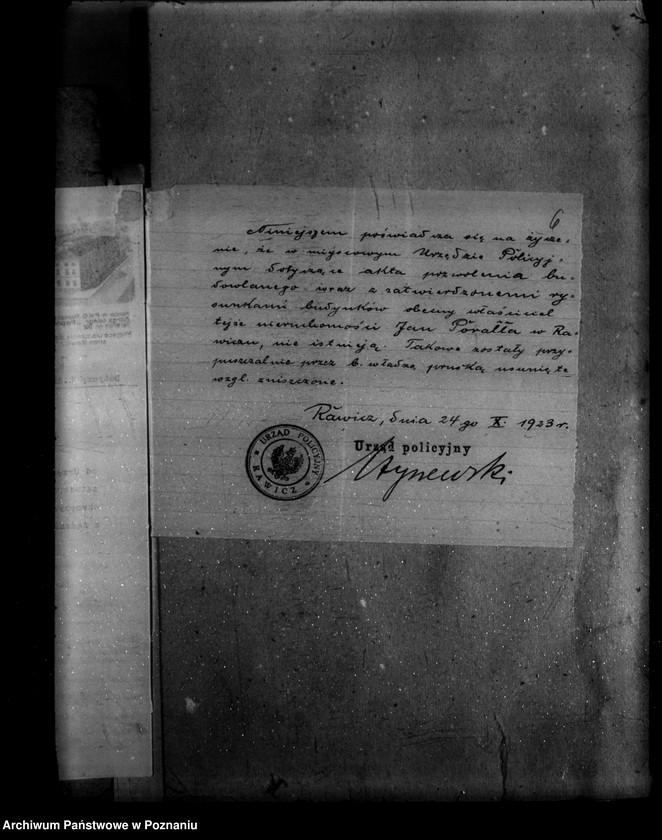 6
Niniejszem poświadcza się na życze-
nie, że w miejscowym Urzędzie Policyj-
nym dotyczące akta pozwolenia bu-
dowlanego wraz z zatwierdzonemi ry-
sunkami budynków obecny właściciel
tejże nieruchomości Jan Porałła w Ra-
wiczu, nie istnieją. Takowe zostały przy-
puszczalnie przez b. władzę pruską usunięte
wzgl. zniszczone.
Rawicz, dnia 24 go X. 1923 r.
Urząd policyjny
URZĄD POLICYJNY
RAWICZ
Archiwum Państwowe w Poznaniu